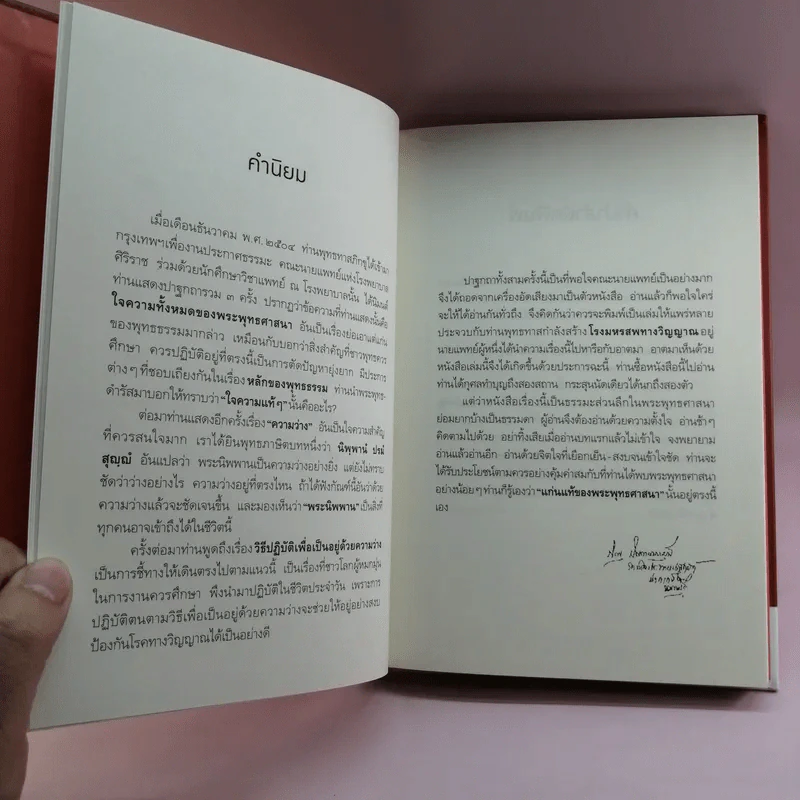 คำนิยม
เมื่อเดือนธันวาคม พ.ศ. ๒๕๐๔ ท่านพุทธทาสภิกขุได้เข้ามา
กรุงเทพฯเพื่องานประกาศธรรมะ คณะนายแพทย์แห่งโรงพยาบาล
ศิริราช ร่วมด้วยนักศึกษาวิชาแพทย์ ณ โรงพยาบาลนั้น ได้นิมนต์
ท่านแสดงปาฐกถารวม ๓ ครั้ง ปรากฏว่าข้อความที่ท่านแสดงนั้นคือ
ใจความทั้งหมดของพระพุทธศาสนา อันเป็นเรื่องย่อเอาแต่แก่น
ของพุทธธรรมมากล่าว เหมือนกับบอกว่าสิ่งสำคัญที่ชาวพุทธควร
ศึกษา ควรปฏิบัติอยู่ที่ตรงนี้เป็นการตัดปัญหายุ่งยาก มีประการ
ต่างๆ ที่ชอบเถียงกันในเรื่อง หลักของพุทธธรรม ท่านนำพระพุทธ-
ดำรัสมาบอกให้ทราบว่า “ใจความแท้ๆ” นั้นคืออะไร?
ต่อมาท่านแสดงอีกครั้งเรื่อง “ความว่าง” อันเป็นใจความสำคัญ
ที่ควรสนใจมาก เราได้ยินพุทธภาษิตบทหนึ่งว่า นิพฺพานํ ปรมํ
สุญฺญํ อันแปลว่า พระนิพพานเป็นความว่างอย่างยิ่ง แต่ยังไม่ทราบ
ชัดว่าว่างอย่างไร ความว่างอยู่ที่ตรงไหน ถ้าได้ฟังกัณฑ์นี้อันว่าด้วย
ความว่างแล้วจะชัดเจนขึ้น และมองเห็นว่า “พระนิพพาน” เป็นสิ่งที่
ทุกคนอาจเข้าถึงได้ในชีวิตนี้
ครั้งต่อมาท่านพูดถึงเรื่อง วิธีปฏิบัติเพื่อเป็นอยู่ด้วยความว่าง
เป็นการชี้ทางให้เดินตรงไปตามแนวนี้ เป็นเรื่องที่ชาวโลกผู้หมกมุ่น
ในการงานควรศึกษา พึงนำมาปฏิบัติในชีวิตประจำวัน เพราะการ
ปฏิบัติตนตามวิธีเพื่อเป็นอยู่ด้วยความว่างจะช่วยให้อยู่อย่างสงบ
ป้องกันโรคทางวิญญาณได้เป็นอย่างดี
ปาฐกถาทั้งสามครั้งนี้เป็นที่พอใจคณะนายแพทย์เป็นอย่างมาก
จึงได้ถอดจากเครื่องอัดเสียงมาเป็นตัวหนังสือ อ่านแล้วก็พอใจใคร่
จะให้ได้อ่านกันทั่วถึง จึงคิดกันว่าควรจะพิมพ์เป็นเล่มให้แพร่หลาย
ประจวบกับท่านพุทธทาสกำลังสร้าง โรงมหรสพทางวิญญาณ อยู่
นายแพทย์ผู้หนึ่งได้นำความเรื่องนี้ไปหารือกับอาตมา อาตมาเห็นด้วย
หนังสือเล่มนี้จึงได้เกิดขึ้นด้วยประการฉะนี้ ท่านซื้อหนังสือนี้ไปอ่าน
ท่านได้กุศลทำบุญถึงสองสถาน กระสุนนัดเดียวได้นกถึงสองตัว
แต่ว่าหนังสือเรื่องนี้เป็นธรรมะส่วนลึกในพระพุทธศาสนา
ย่อมยากบ้างเป็นธรรมดา ผู้อ่านจึงต้องอ่านด้วยความตั้งใจ อ่านช้าๆ
คิดตามไปด้วย อย่าทิ้งเสียเมื่ออ่านบทแรกแล้วไม่เข้าใจ จงพยายาม
อ่านแล้วอ่านอีก อ่านด้วยจิตใจที่เยือกเย็น-สงบจนเข้าใจชัด ท่านจะ
ได้รับประโยชน์ตามควรอย่างคุ้มค่าสมกับที่ท่านได้พบพระพุทธศาสนา
อย่างน้อยๆ ท่านก็รู้เองว่า “แก่นแท้ของพระพุทธศาสนา” นั้นอยู่ตรงนี้
เอง